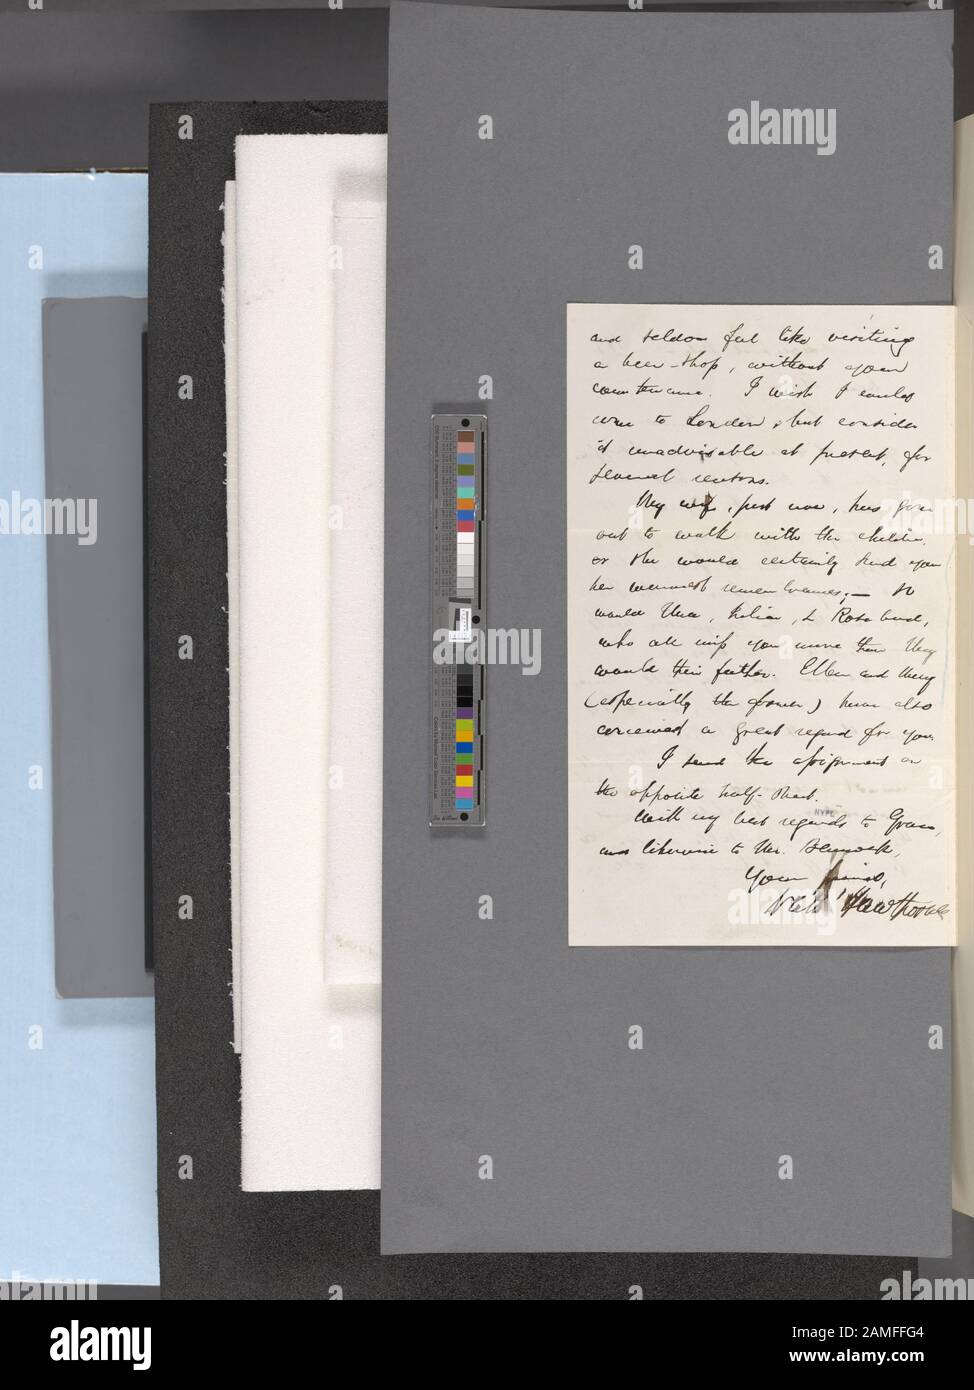 and seldom feel like visiting
a beer-shop, without your
countenance. I wish I could
come to London, but consider
it unadvisable at present, for
several reasons.
My wife, just now, has gone
out to walk with the children,
or she would certainly send you
her warmest remembrances;— so
would Una, Julian, & Rosebud,
who all miss you more than they
would their father. Ellen and Mary
(especially the former) have also
conceived a great regard for you.
I send the assignment on
the opposite half-sheet.
With my best regards to
and likewise to Mr. Bennoch,
Your friend,
Nath' Hawthorne
NYPL
alamy
alamy
alamy
alamy
alamy
alamy
a
alamy
Image ID: 2AMFFG4
www.alamy.com